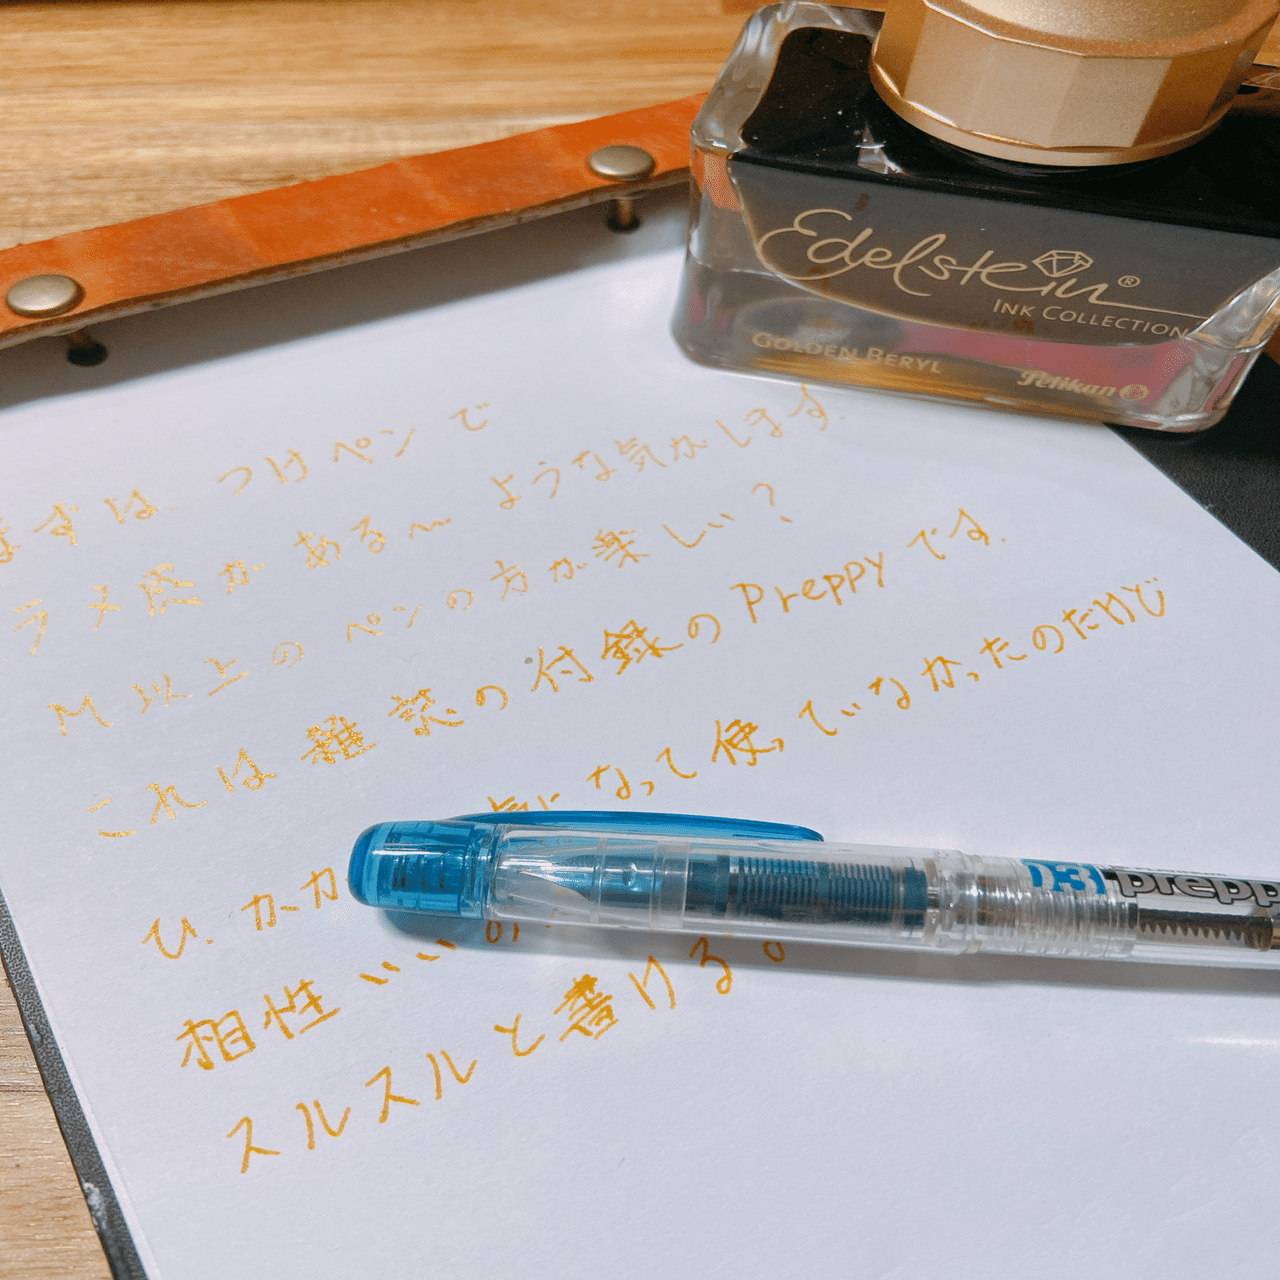 Edelstein®
INK COLLECTION
GOLDEN BERYL
Pelikan
まずは、つけペンで
ラメ感がある〜ような気がします.
M以上のペンの方が楽しい?
これは雑誌の付録のPreppyです.
気になって使っていなかったのだけど
相性いい
スルスルと書ける。
03 prepp